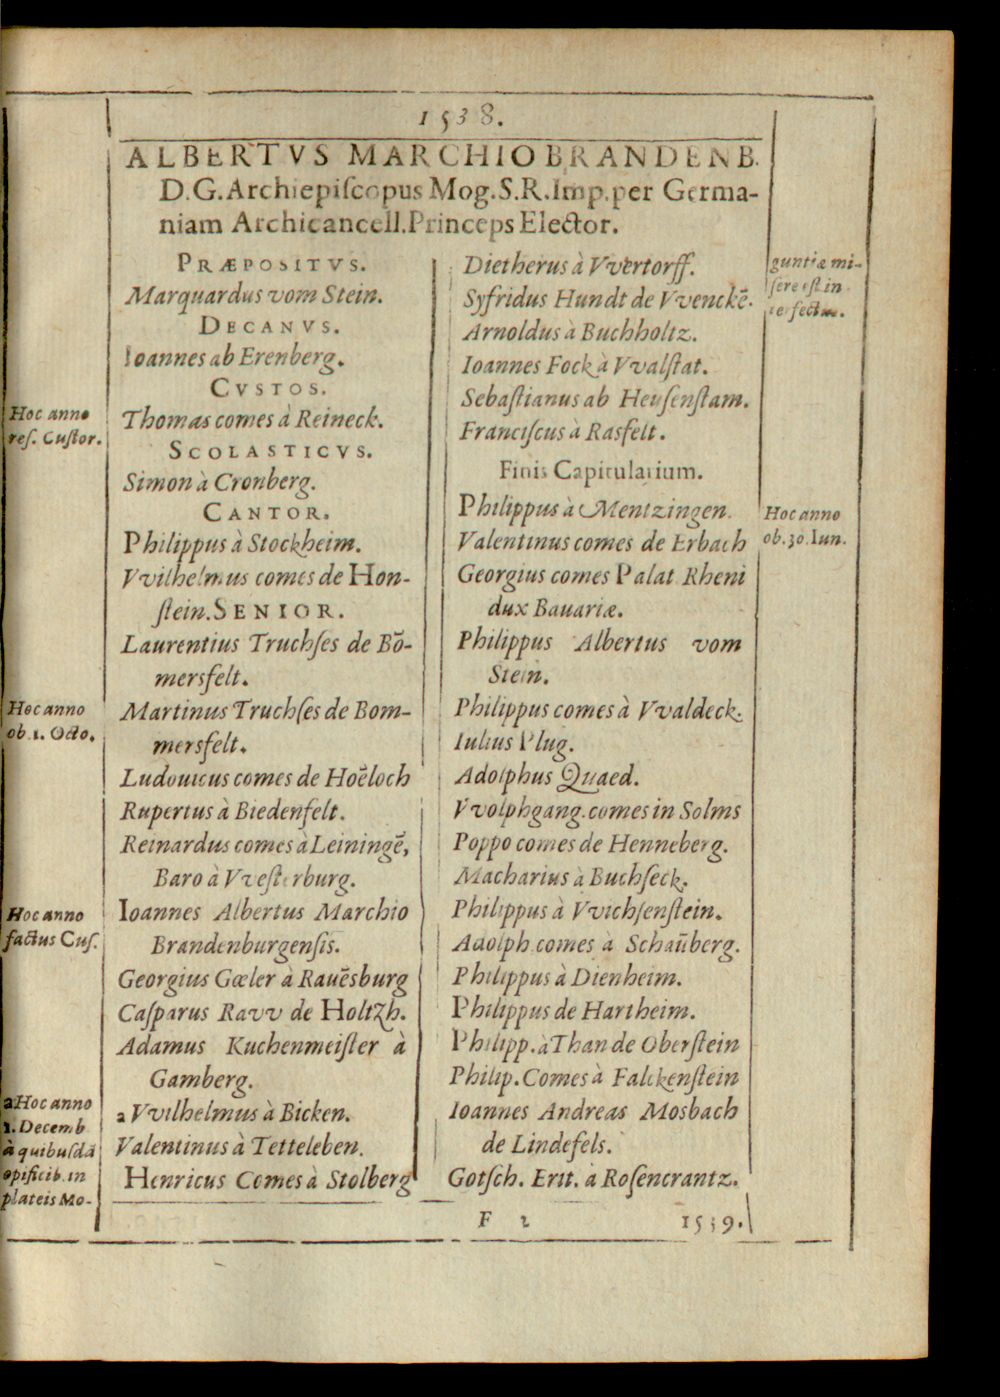 1538.
ALBERTVS MARCHIO BRANDENB.
D.G.Archiepiſcopus Mog.S.R.Imp.per Germa-
niam Archicancell.Princeps Elector.
PRÆPOSITVS.
Marquardus vom Stein.
DECANVS.
Ioannes ab Erenberg.
CVSTOS.
Thomas comes à Reineck.
SCOLASTICVS.
Simon à Cronberg.
CANTOR.
Philippus à Stockheim.
Vvilhelmus comes de Hon-
ſtein.SENIOR.
Laurentius Truchſes de Bō-
mersfelt.
Martinus Truchſes de Bom-
mersfelt.
Ludouicus comes de Hoēloch
Rupertus à Biedenfelt.
Reinardus comes à Leiningē,
Baro à Vveſterburg.
Ioannes Albertus Marchio
Brandenburgenſis.
Georgius Gœler à Rauēsburg
Caſparus Ravv de Holtzh.
Adamus Kuchenmeiſter à
Gamberg.
a Vvilhelmus à Bicken.
Valentinus à Tetteleben.
Henricus Comes à Stolberg
Dietherus à Vvertorff.
Syfridus Hundt de Vvenckē.
Arnoldus à Buchholtz.
Ioannes Fock à Vvalſtat.
Sebaſtianus ab Heuſenſtam.
Franciſcus à Rasfelt.
Finis Capitularium.
Philippus à Mentzingen.
Valentinus comes de Erbach
Georgius comes Palat Rheni
dux Bauariæ.
Philippus Albertus vom
Stein.
Philippus comes à Vvaldeck.
Iulius Plug.
Adolphus Quaed.
Vvolphgang.comes in Solms
Poppo comes de Henneberg.
Macharius à Buchſeck.
Philippus à Vvichſenſtein.
Adolph.comes à Schaūberg.
Philippus à Dienheim.
Philippus de Hartheim.
Philipp.à Than de Oberſtein
Philip.Comes à Falckenſtein
Ioannes Andreas Mosbach
de Lindefels.
Gotſch. Erit. à Roſencrantz.
Hoc anno
reſ. Cuſtor.
Hoc anno
ob.1. Octo.
Hoc anno
factus Cuſ.
a Hoc anno
1.Decemb
à quibuſdā
opificib.in
plateis Mo-
guntiæ mi-
ſere eſt in
terfectus.
Hoc anno
ob.30.Iun.
F 2
1539.